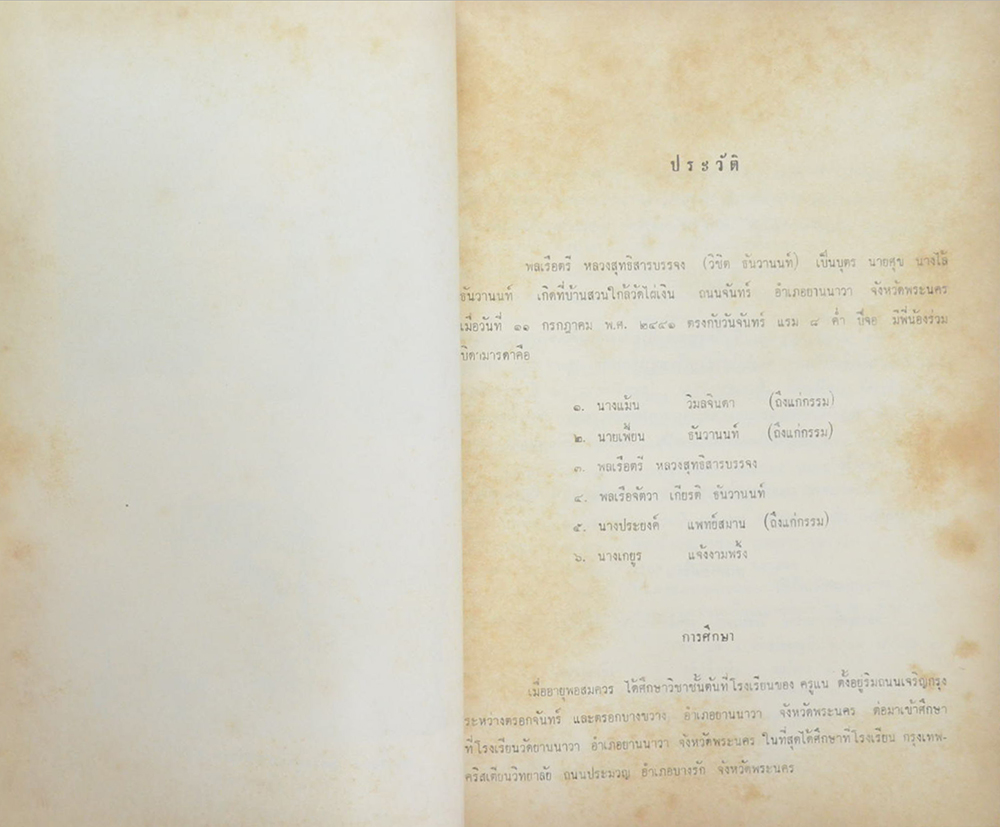 ประวัติ
พลเรือตรี หลวงสุทธิสารบรรจง (วิชิต ธันวานนท์) เป็นบุตร นายศุข นางไล้
ธันวานนท์ เกิดที่บ้านสวนใกล้วัดไผ่เงิน ถนนจันทร์ อำเภอยานนาวา จังหวัดพระนคร
เมื่อวันที่ ๑๑ กรกฎาคม พ.ศ. ๒๔๔๑ ตรงกับวันจันทร์ แรม ๘ ค่ำ ปีจอ มีพี่น้องร่วม
บิดามารดาคือ
๑. นางแม้น วิมลจินดา (ถึงแก่กรรม)
๒. นายเพี้ยน ธันวานนท์ (ถึงแก่กรรม)
๓. พลเรือตรี หลวงสุทธิสารบรรจง
๔. พลเรือจัตวา เกียรติ ธันวานนท์
๕. นางประยงค์ แพทย์สมาน (ถึงแก่กรรม)
๖. นางเกยูร แจ้งงามพริ้ง
การศึกษา
เมื่ออายุพอสมควร ได้ศึกษาวิชาชั้นต้นที่โรงเรียนของ ครูแน ตั้งอยู่ริมถนนเจริญกรุง
ระหว่างตรอกจันทร์ และตรอกบางขวาง อำเภอยานนาวา จังหวัดพระนคร ต่อมาเข้าศึกษา
ที่โรงเรียนวัดยานนาวา อำเภอยานนาวา จังหวัดพระนคร ในที่สุดได้ศึกษาที่โรงเรียน กรุงเทพ-
คริสเตียนวิทยาลัย ถนนประมวญ อำเภอบางรัก จังหวัดพระนคร